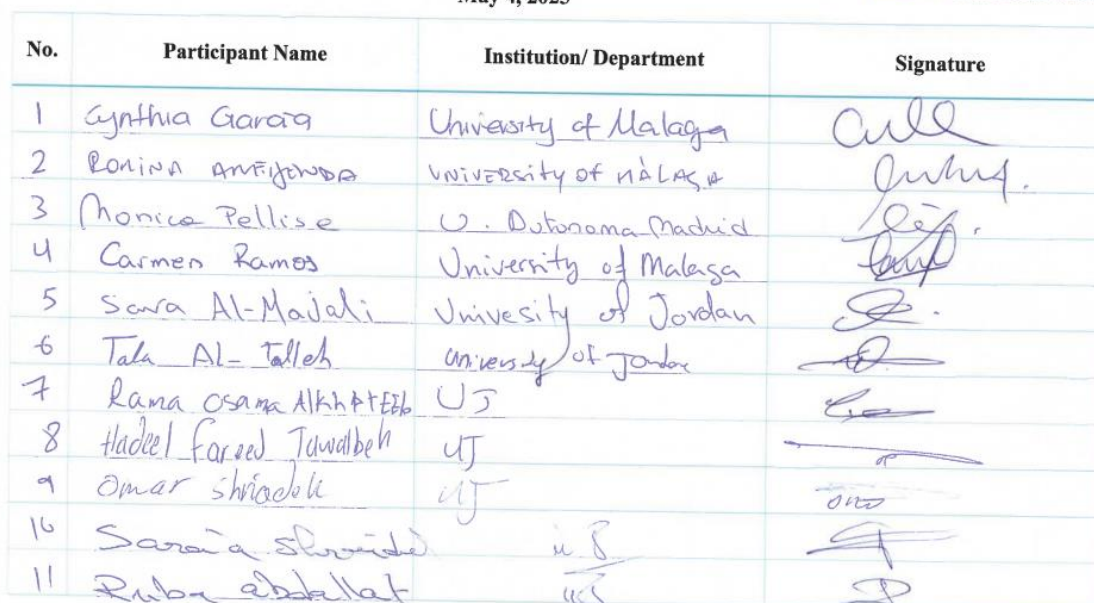 May 4, 2023
No. Participant Name Institution/ Department Signature
1 Cynthia Garcia University of Malaga
2 ROMINA University of MÀLAGA
3 Monica Pellise U. Autonoma Madrid
4 Carmen Ramos University of Malaga
5 Sara Al-Majali Univesity of Jordan
6 Tala AL- Talleh University of Jordan
7 Rama Osama AlkhATEEb UJ
8 Hadeel fareed Tawalbeh UJ
9 Omar UJ
10
11 Ruba abdallat